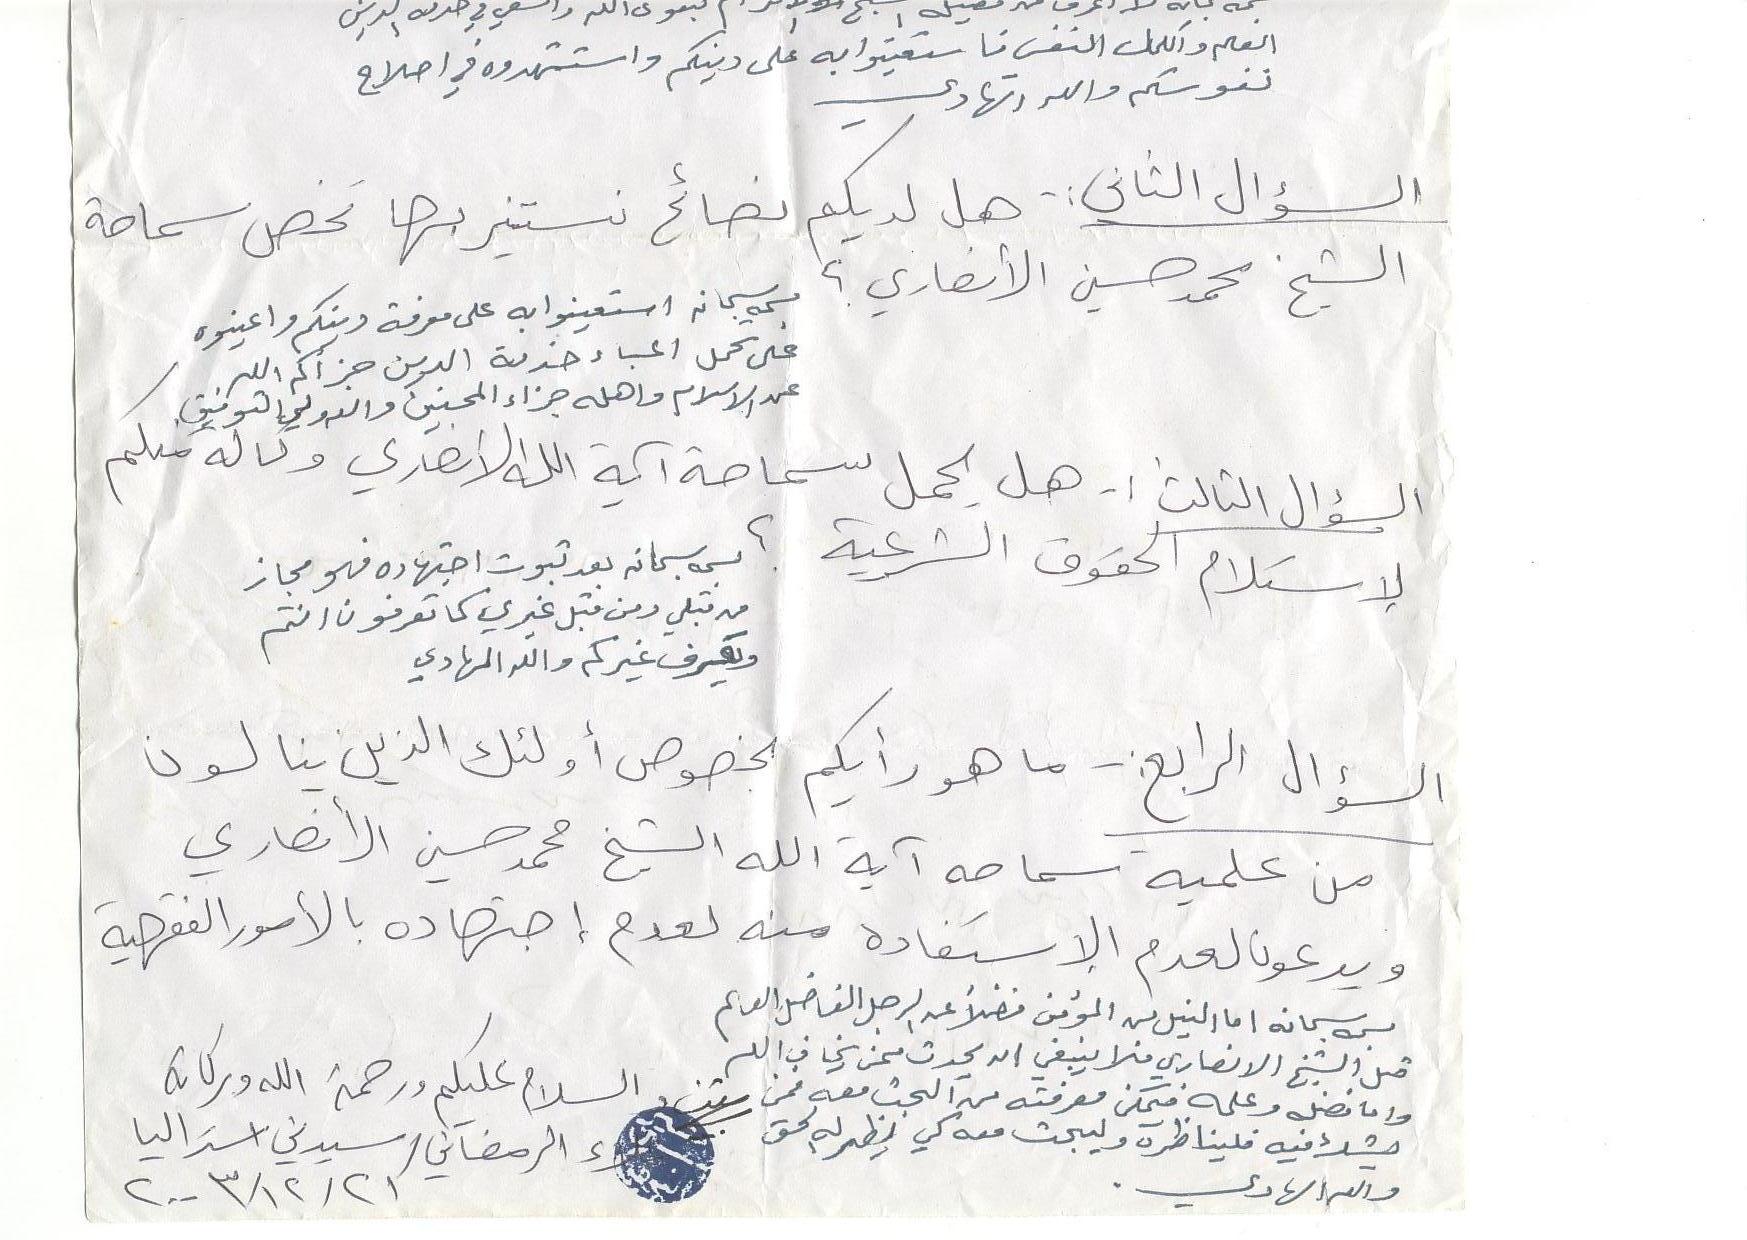 العلم واكمل النفس فاستعينوا به على دينكم واسترشدوه في اصلاح
نفوسكم والله الهادي
السؤال الثاني :- هل لديكم نصائح نستنير بها تخص سماحة
الشيخ محمد حسين الأنصاري ؟
بسمه سبحانه استعينوا به على معرفة دينكم واعينوه
على تحمل اعباء خدمة الدين جزاكم الله
عن الاسلام واهله جزاء المحسنين والله ولي التوفيق
السؤال الثالث :- هل يحمل سماحة آية الله الأنصاري وكالة منكم
لإستلام الحقوق الشرعية ؟
بسمه سبحانه بعد ثبوت اجتهاده فهو مجاز
من قبلي ومن قبل غيري كما تعرفون انتم
ويعرف غيركم والله الهادي
السؤال الرابع :- ما هو رأيكم بخصوص أولئك الذين ينالون
من علمية سماحه آية الله الشيخ محمد حسين الأنصاري
ويدعون لعدم الإستفاده منه لعدم إجتهاده بالأمور الفقهية
بسمه سبحانه اما النيل من المؤمن فضلاً عن الرجل الفاضل العالم
مثل الشيخ الانصاري فلا ينبغي ان يحدث ممن يخاف الله
واما فضله وعلمه فيمكن معرفته من البحث معه فمن
يشك فيه فليناظره وليبحث معه كي يظهر له الحق
والله الهادي .
والسلام عليكم ورحمة الله وبركاته
علاء الرمضاني / سيدني استراليا
٢٠٠٣/١٢/٢١